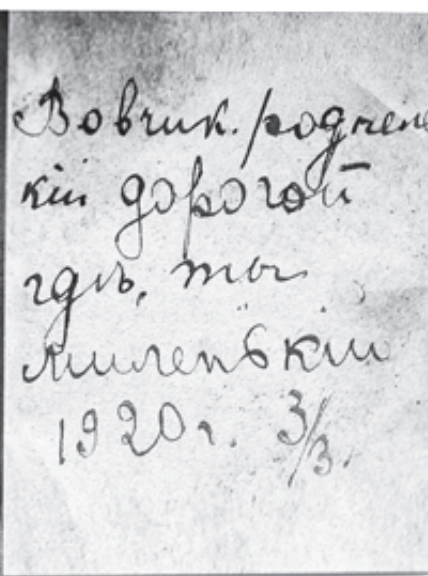 Вовчик. родчень
кій дорогой
гдѣ, ты
миленькій
1920 г. 3/3.